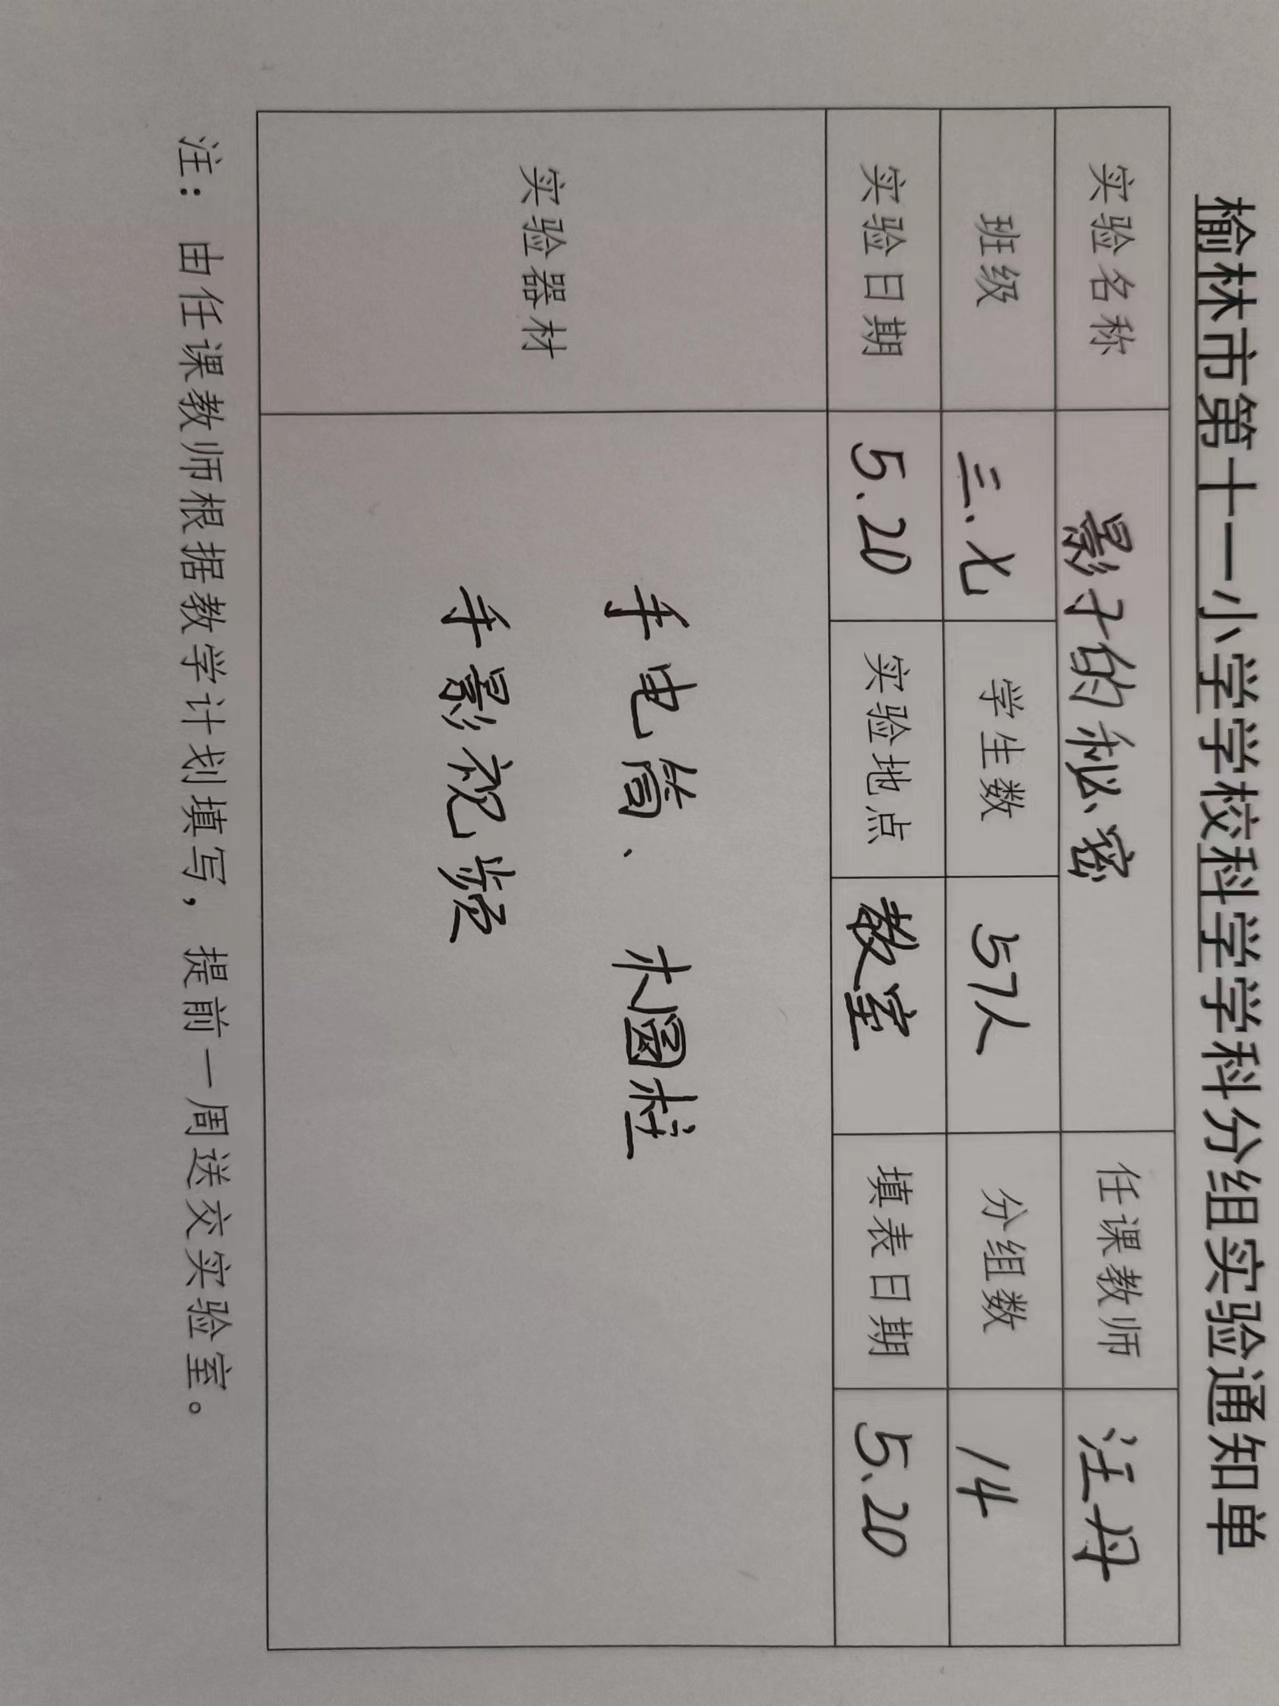 榆林市第十一小学学校科学学科分组实验通知单
实验名称 影子的秘密 任课教师 汪丹
班级 三.七 学生数 57人 分组数 14
实验日期 5.20 实验地点 教室 填表日期 5.20
实验器材 手电筒、木圆柱
手影视频
注：由任课教师根据教学计划填写，提前一周送交实验室。